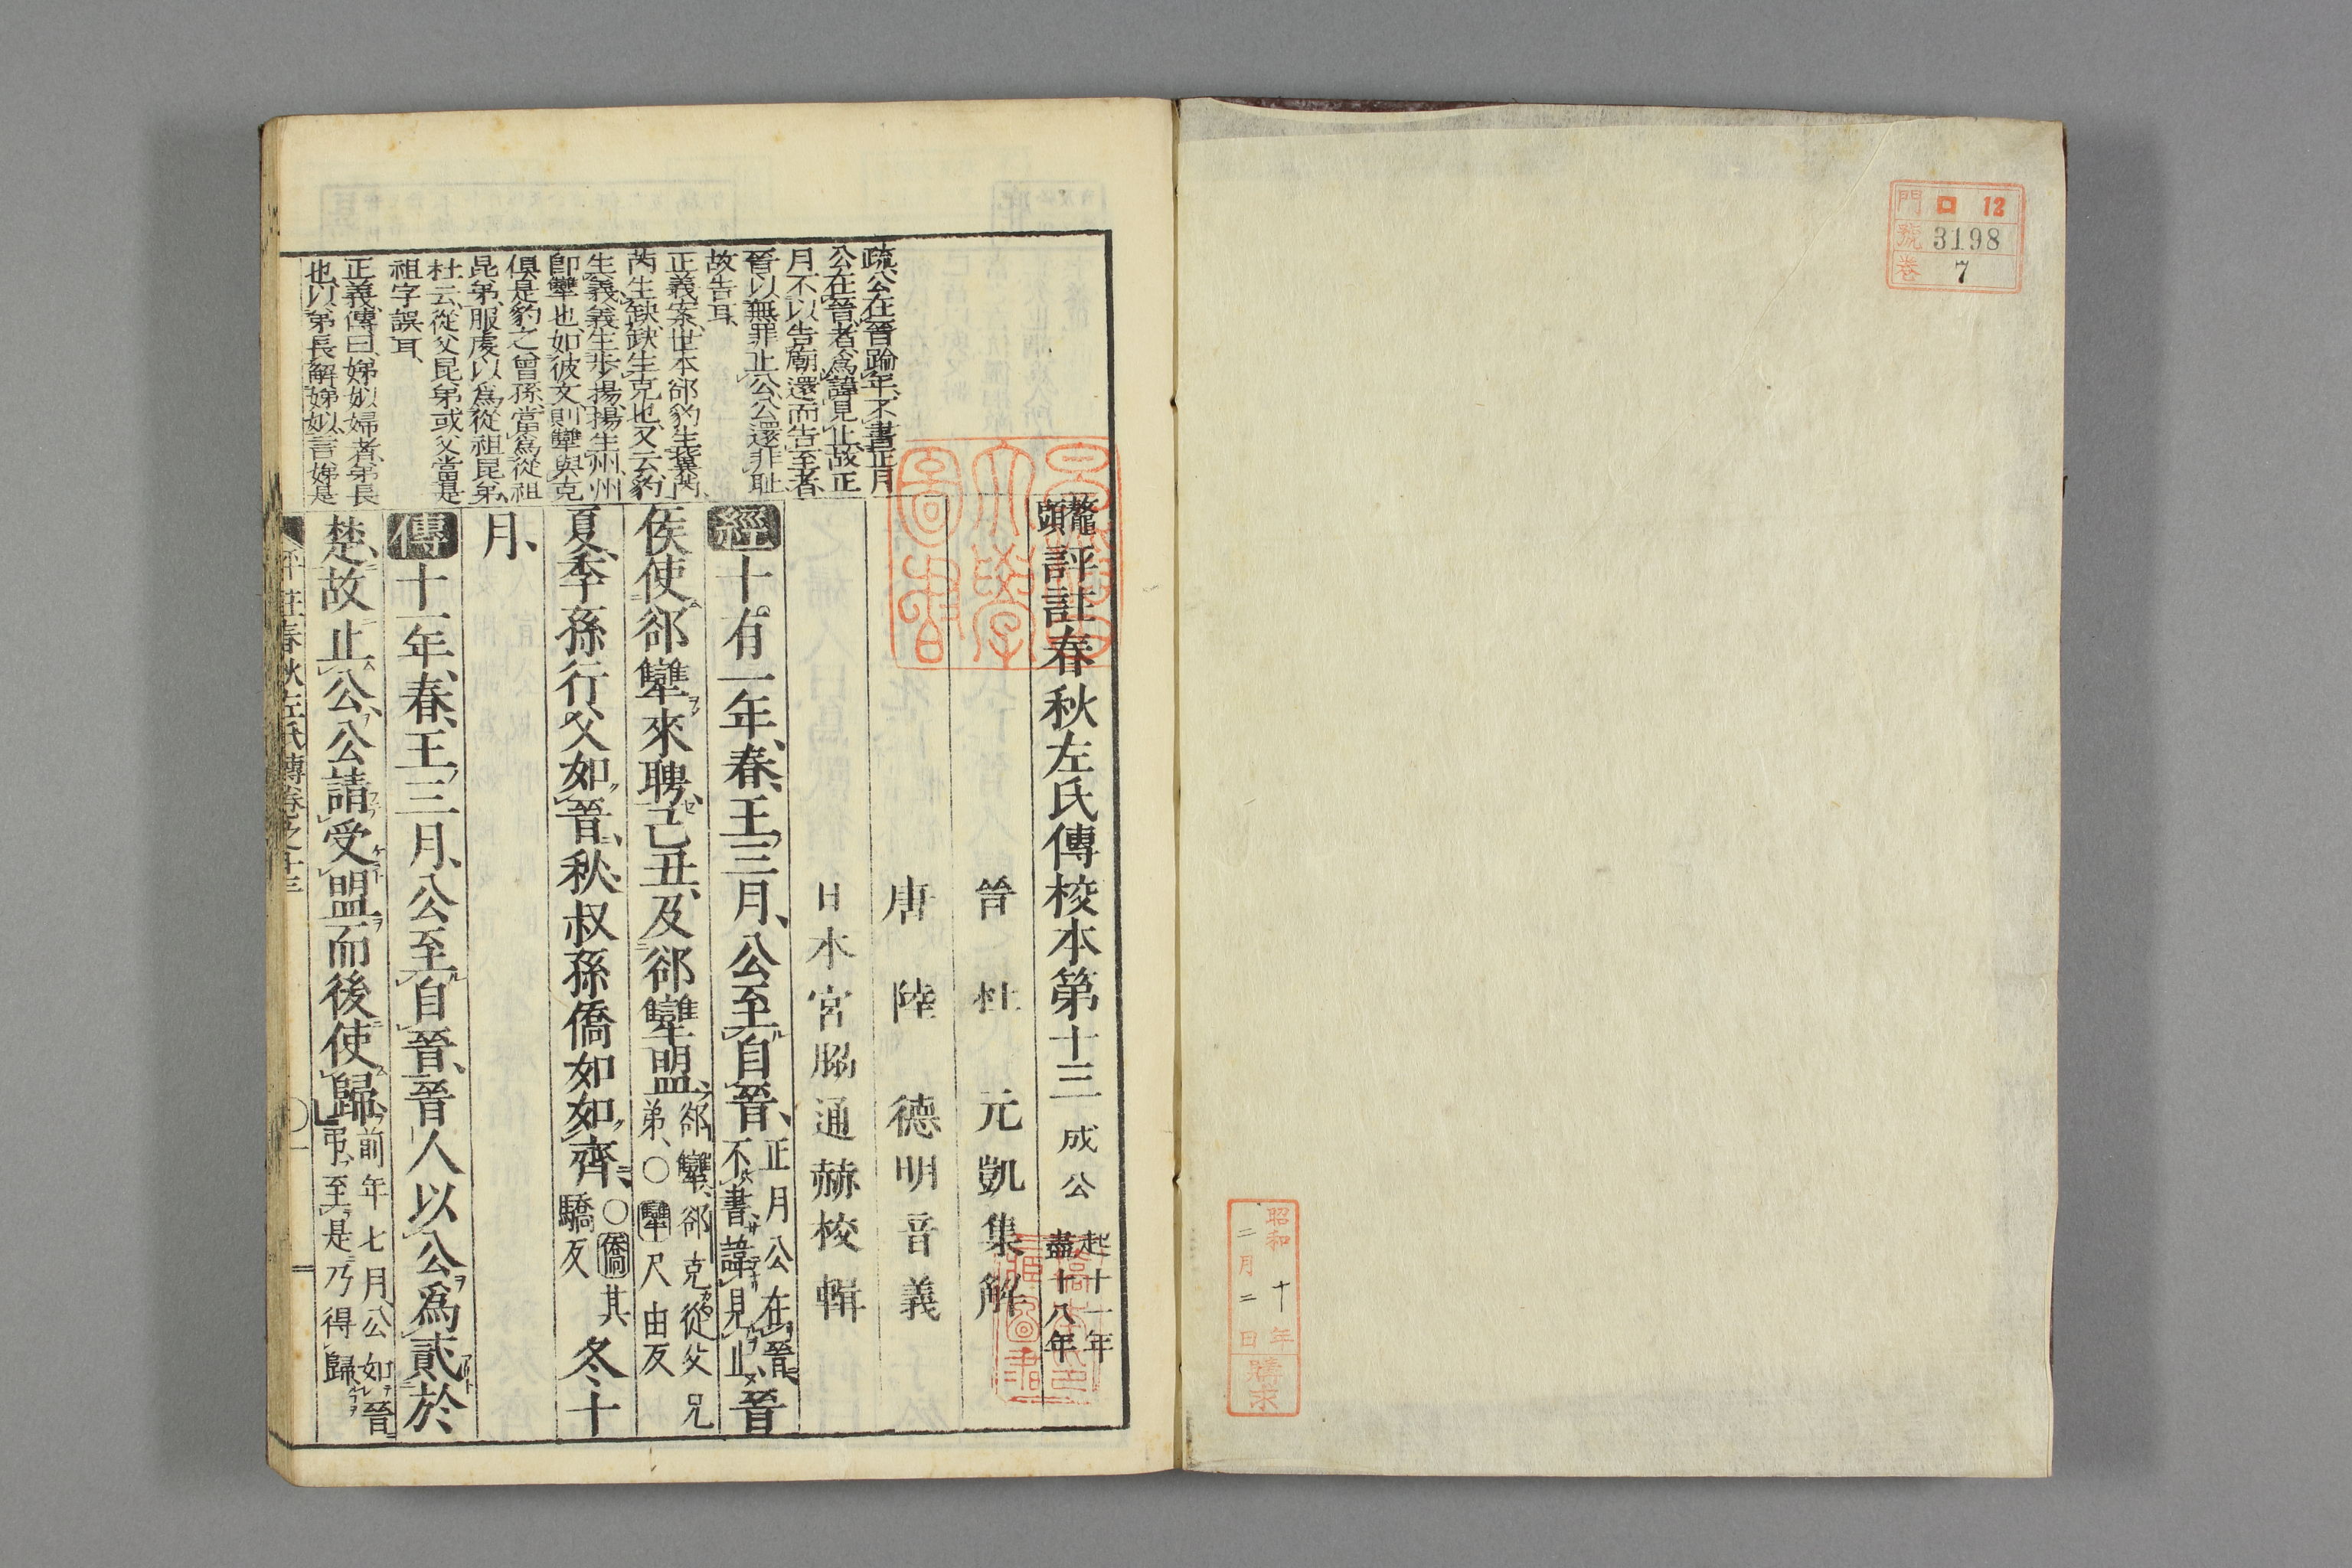 門 ロ 12
號 3198
卷 7
昭和十年
二月二日
購求
鼇頭評註春秋左氏傳校本第十三 成公 起十一年盡十八年
晉 杜 元凱集解
唐 陸 德明音義
日本宮脇通赫校輯
疏公在晉踰年不書正月
公在晉者爲諱見止故正
月不以告廟還而告至者
晉以無罪止公公還非耻
故告耳
正義案世本郤豹生冀芮
芮生缺缺生克也又云豹
生義義生步揚揚生州州
卽犨也如彼文則犨與克
俱是豹之曾孫當爲從祖
昆弟服虔以爲從祖昆弟
杜云從父昆弟或父當是
祖字誤耳
正義傳曰娣姒婦者弟長
也以弟長解娣姒言娣是
經十有一年春王三月公至自晉 正月公在晉不書諱見止 晉
侯使郤犨來聘己丑及郤犨盟 郤犨郤克從父兄弟○犨尺由反
夏季孫行父如晉秋叔孫僑如如齊 ○僑其驕反 冬十
月
傳十一年春王三月公至自晉晉人以公爲貳於
楚故止公公請受盟而後使歸 前年七月公如晉弔至是乃得歸
評註春秋左氏傳卷之十三 ○ 一